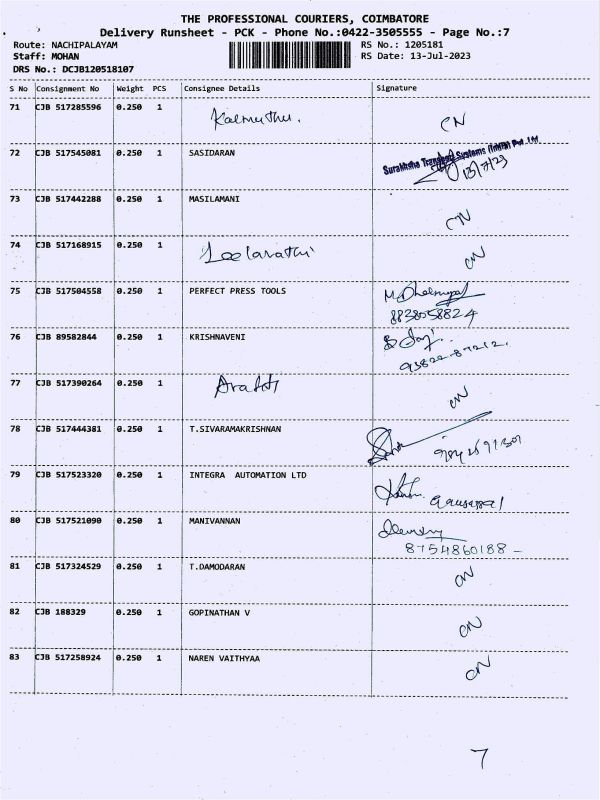 THE PROFESSIONAL COURIERS, COIMBATORE
Delivery Runsheet - PCK - Phone No.:0422-3505555 - Page No.:7
Route: NACHIPALAYAM RS No.: 1205181
Staff: MOHAN RS Date: 13-Jul-2023
DRS No.: DCJB120518107
S No Consignment No Weight PCS Consignee Details Signature
71 CJB 517285596 0.250 1 CN
72 CJB 517545081 0.250 1 SASIDARAN Surakhsha Transport Systems (India) Pvt. Ltd
13/7/23
73 CJB 517442288 0.250 1 MASILAMANI CN
74 CJB 517168915 0.250 1 Leelavathi CN
75 CJB 517504558 0.250 1 PERFECT PRESS TOOLS
8838058824
76 CJB 89582844 0.250 1 KRISHNAVENI
77 CJB 517390264 0.250 1 CN
78 CJB 517444381 0.250 1 T.SIVARAMAKRISHNAN
79 CJB 517523320 0.250 1 INTEGRA AUTOMATION LTD
80 CJB 517521090 0.250 1 MANIVANNAN
8754860188 -
81 CJB 517324529 0.250 1 T.DAMODARAN CN
82 CJB 188329 0.250 1 GOPINATHAN V CN
83 CJB 517258924 0.250 1 NAREN VAITHYAA CN
7